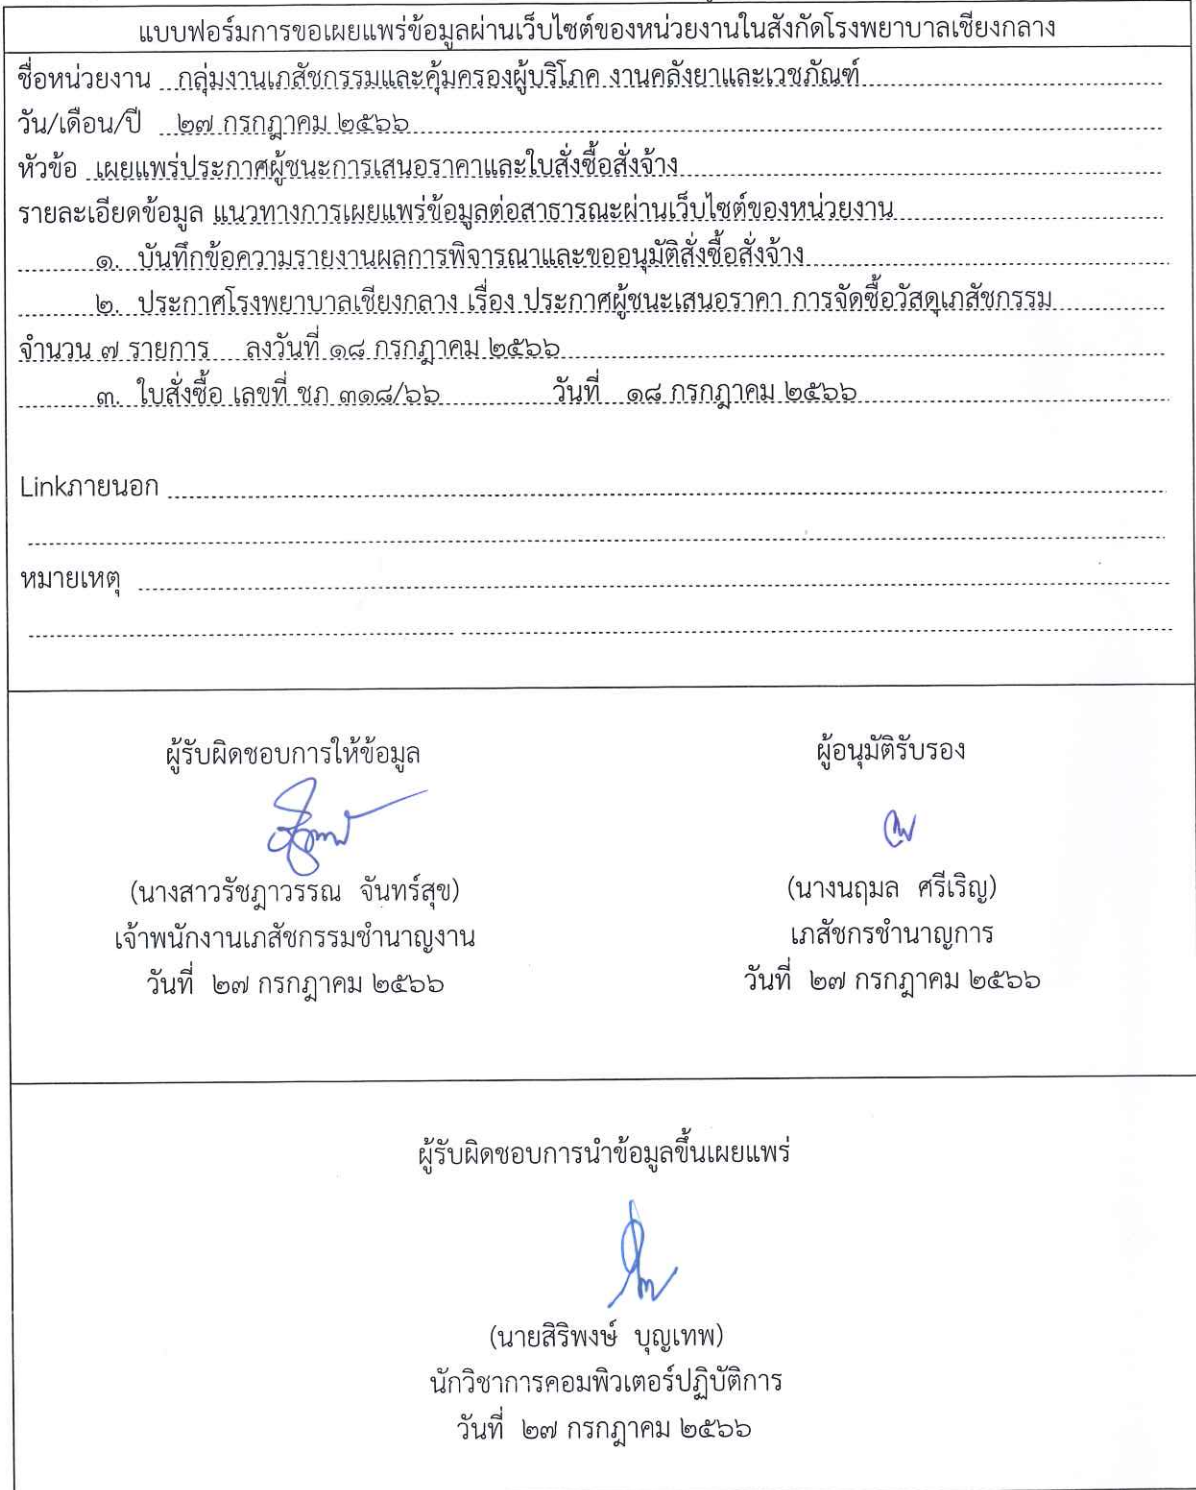 แบบฟอร์มการขอเผยแพร่ข้อมูลผ่านเว็บไซต์ของหน่วยงานในสังกัดโรงพยาบาลเชียงกลาง
ชื่อหน่วยงาน กลุ่มงานเภสัชกรรมและคุ้มครองผู้บริโภค งานคลังยาและเวชภัณฑ์
วัน/เดือน/ปี ๒๗ กรกฎาคม ๒๕๖๖
หัวข้อ เผยแพร่ประกาศผู้ชนะการเสนอราคาและใบสั่งซื้อสั่งจ้าง
รายละเอียดข้อมูล แนวทางการเผยแพร่ข้อมูลต่อสาธารณะผ่านเว็บไซต์ของหน่วยงาน
๑. บันทึกข้อความรายงานผลการพิจารณาและขออนุมัติสั่งซื้อสั่งจ้าง
๒. ประกาศโรงพยาบาลเชียงกลาง เรื่อง ประกาศผู้ชนะเสนอราคา การจัดซื้อวัสดุเภสัชกรรม
จำนวน ๗ รายการ ลงวันที่ ๑๘ กรกฎาคม ๒๕๖๖
๓. ใบสั่งซื้อ เลขที่ ชภ ๓๑๘/๖๖ วันที่ ๑๘ กรกฎาคม ๒๕๖๖
Linkภายนอก
หมายเหตุ
ผู้รับผิดชอบการให้ข้อมูล ผู้อนุมัติรับรอง
(นางสาวรัชฎาวรรณ จันทร์สุข) (นางนฤมล ศรีเริญ)
เจ้าพนักงานเภสัชกรรมชำนาญงาน เภสัชกรชำนาญการ
วันที่ ๒๗ กรกฎาคม ๒๕๖๖ วันที่ ๒๗ กรกฎาคม ๒๕๖๖
ผู้รับผิดชอบการนำข้อมูลขึ้นเผยแพร่
(นายสิริพงษ์ บุญเทพ)
นักวิชาการคอมพิวเตอร์ปฏิบัติการ
วันที่ ๒๗ กรกฎาคม ๒๕๖๖